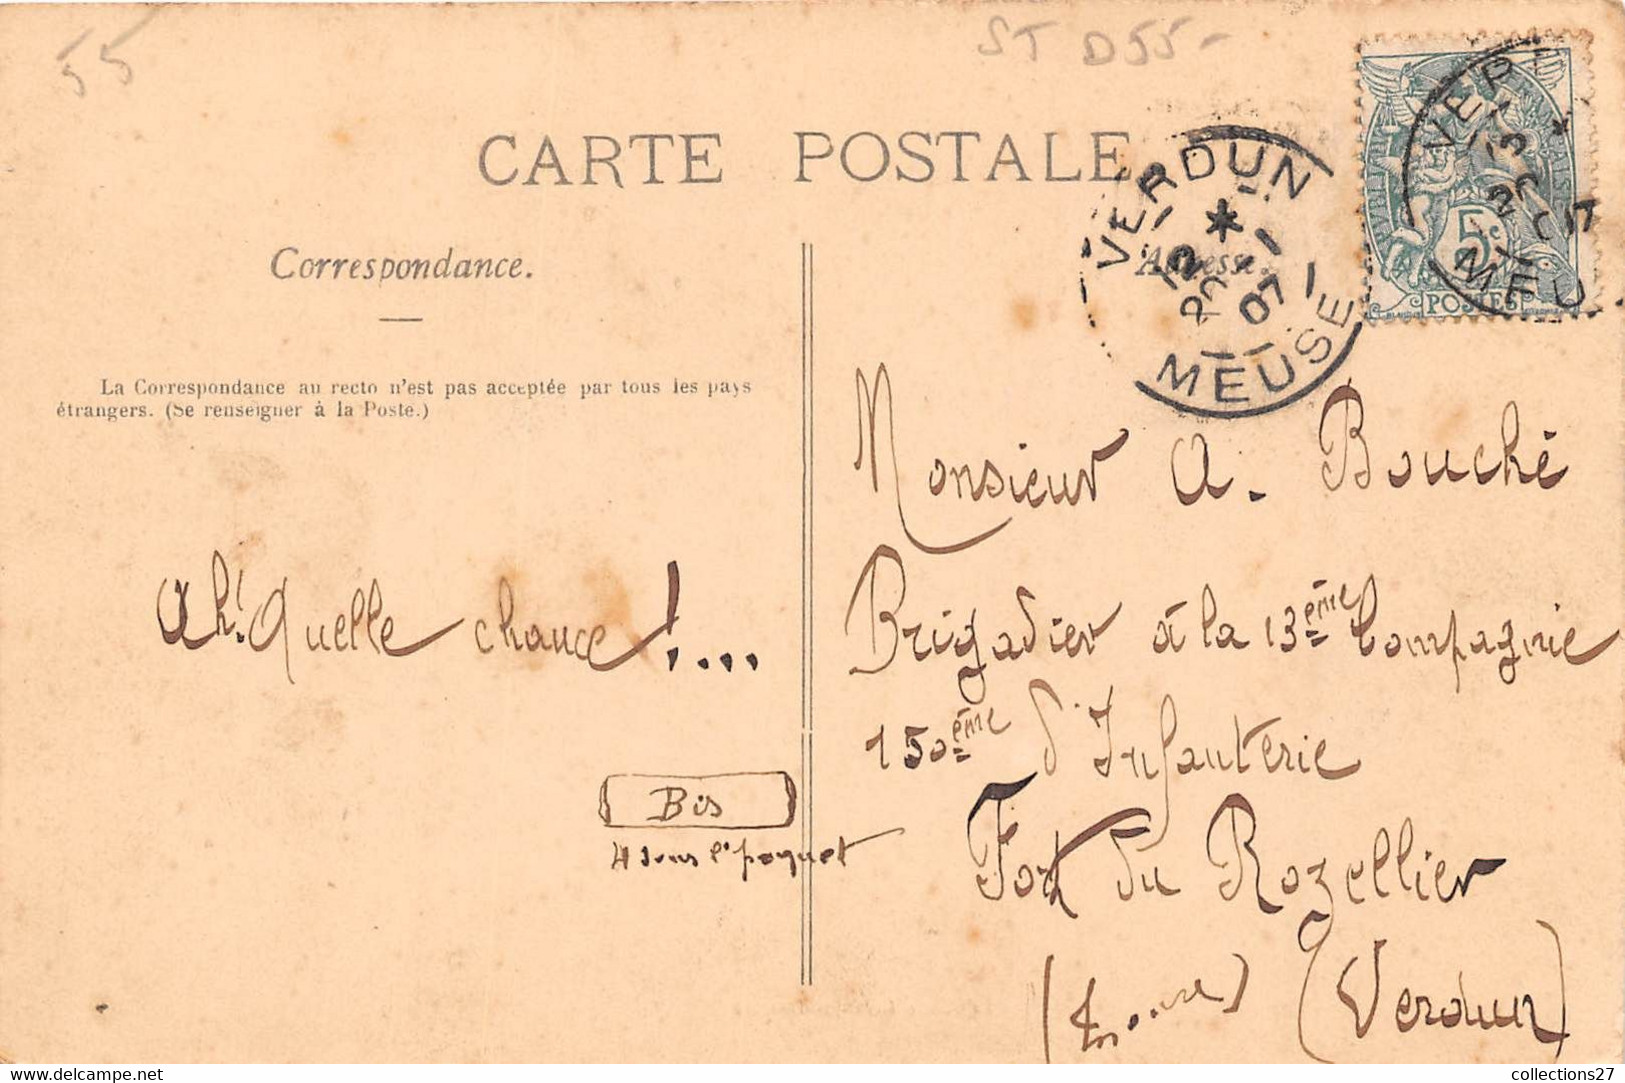 55
ST D55-
CARTE POSTALE
Correspondance.
Adresse.
La Correspondance au recto n'est pas acceptée par tous les pays
étrangers. (Se renseigner à la Poste.)
VERDUN
12 *
20 -1
07
MEUSE
5c
POSTES
MEU
Monsieur A. Bouché
Brigadier à la 13ème Compagnie
150ème d'Infanterie
Fort du Rozellier
(Verdun)
Ah! Quelle chance!....
Bis
4 sous l'paquet
collections27